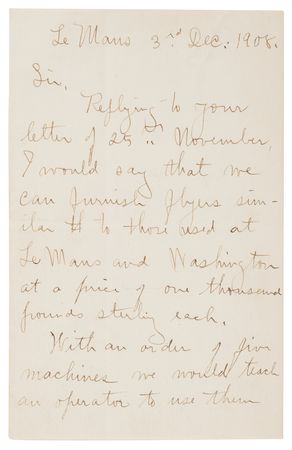 Le Mans 3rd Dec. 1908.
Sir,
Replying to your
letter of 25th November,
I would say that we
can furnish flyers sim-
ilar to those used at
Le Mans and Washington
at a price of one thousand
pounds sterling each.
With an order of five
machines we would teach
an operator to use them